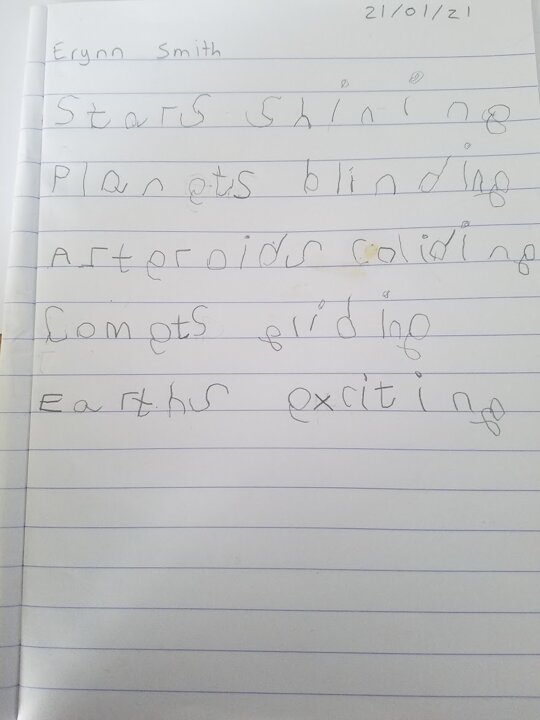 21/01/21
Erynn Smith
Stars shining
Planets blinding
Asteroids coliding
Comets gliding
Earths exciting